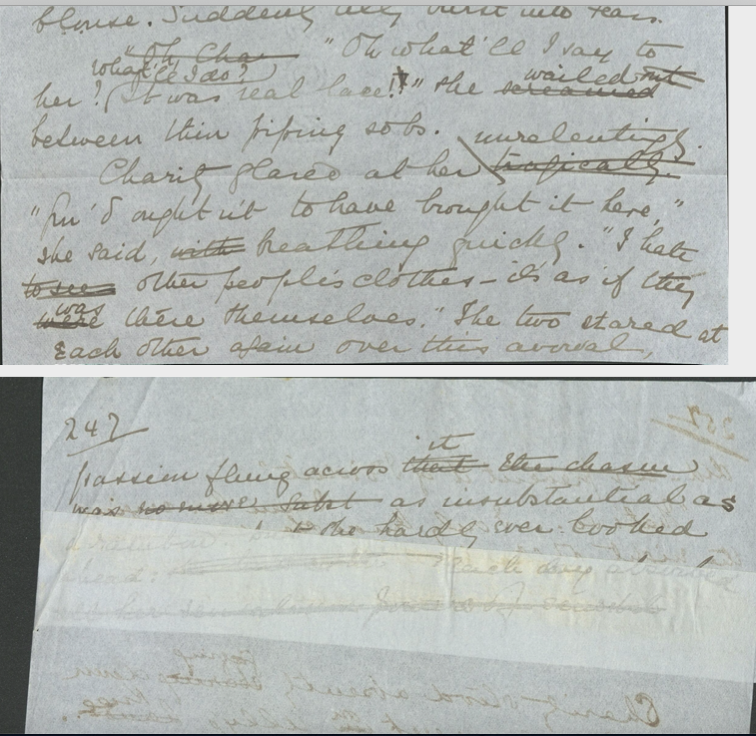 blouse. Suddenly Ally burst into tears.
"Oh Cha "Oh what'll I say to
what'll I do? wailed out
her? It was real lace!" she screamed
between thin piping sobs. unrelentingly.
Charity glared at her tragically.
"You'd oughtn't to have brought it here,"
she said, with breathing quickly. "I hate
to see other people's clothes—it's as if they
was
were there themselves." The two stared at
each other again over this avowal,
247
it
passion flung across that the chasm
was no more subst as insubstantial as
a rainbow. but she hardly ever looked
ahead: each day absorbed